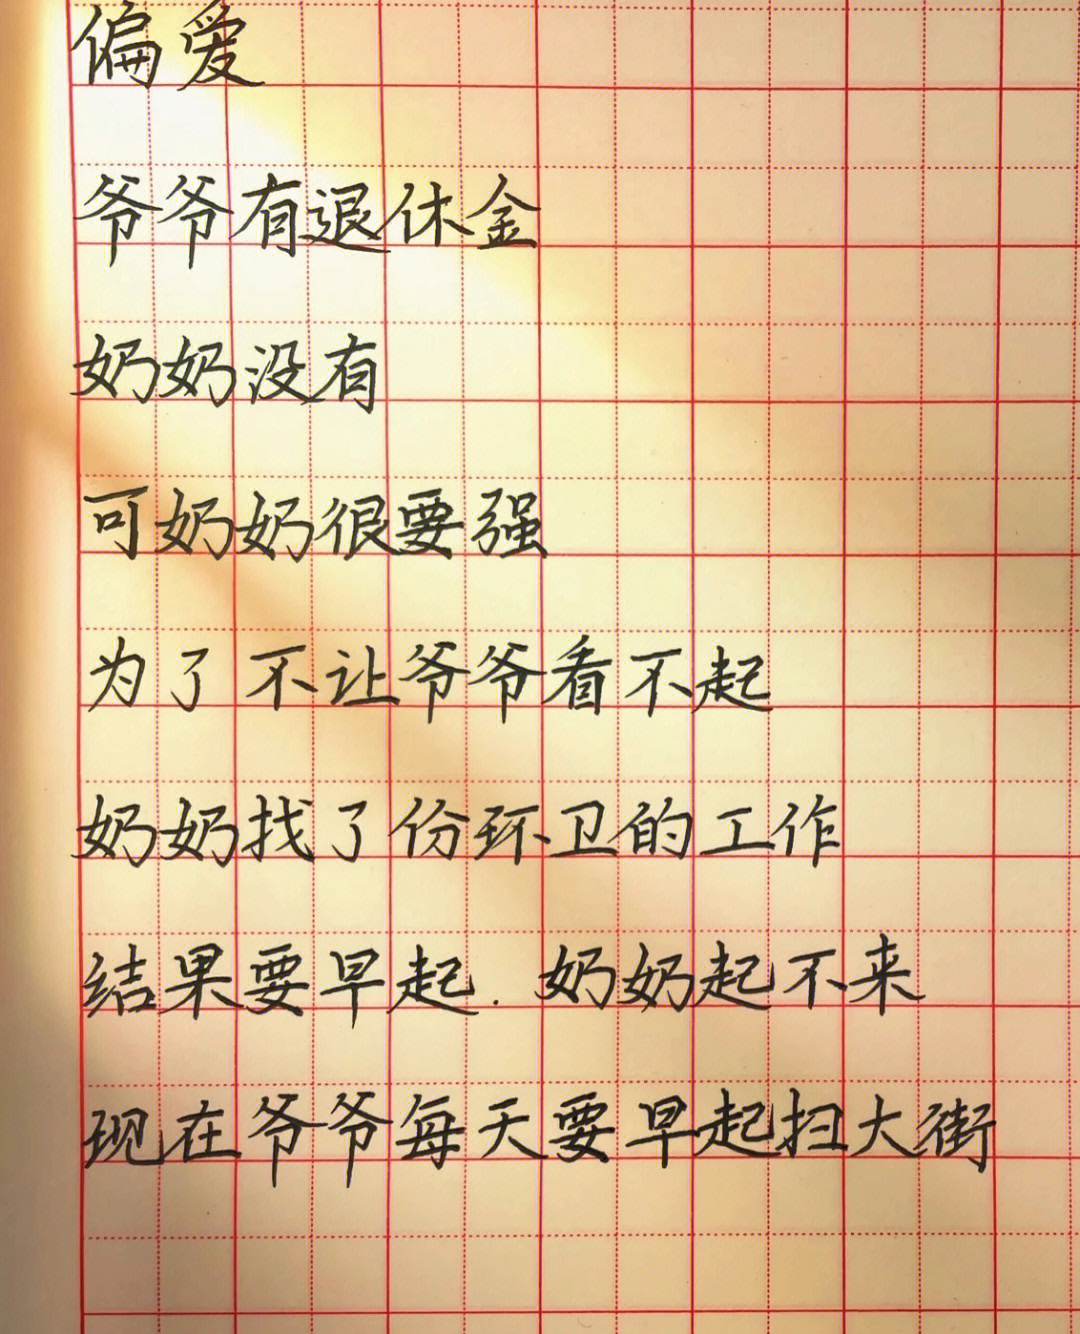 偏爱
爷爷有退休金
奶奶没有
可奶奶很要强
为了不让爷爷看不起
奶奶找了份环卫的工作
结果要早起.奶奶起不来
现在爷爷每天要早起扫大街